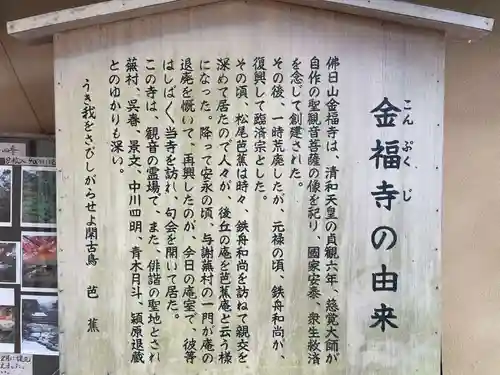 金福寺の由来
こん ぷく じ
佛日山金福寺は、清和天皇の貞観六年、慈覚大師が
自作の聖観音菩薩の像を祀り、國家安泰、衆生救済
を念じて創建された。
その後、一時荒廃したが、元禄の頃、鉄舟和尚が、
復興して臨済宗とした。
その頃、松尾芭蕉は時々、鉄舟和尚を訪ねて親交を
深めて居たので人々が、後丘の庵を芭蕉庵と云う様
になった。降って安永の頃、与謝蕪村の一門が庵の
退廃を慨いて、再興したのが、今日の庵室で、彼等
はしばく、当寺を訪れ、句会を開いて居た。
この寺は、観音の霊場で、また、俳諧の聖地とされ
蕪村、呉春、景文、中川四明、青木月斗、潁原退蔵
とのゆかりも深い。
うき我をさびしがらせよ閑古鳥 芭蕉